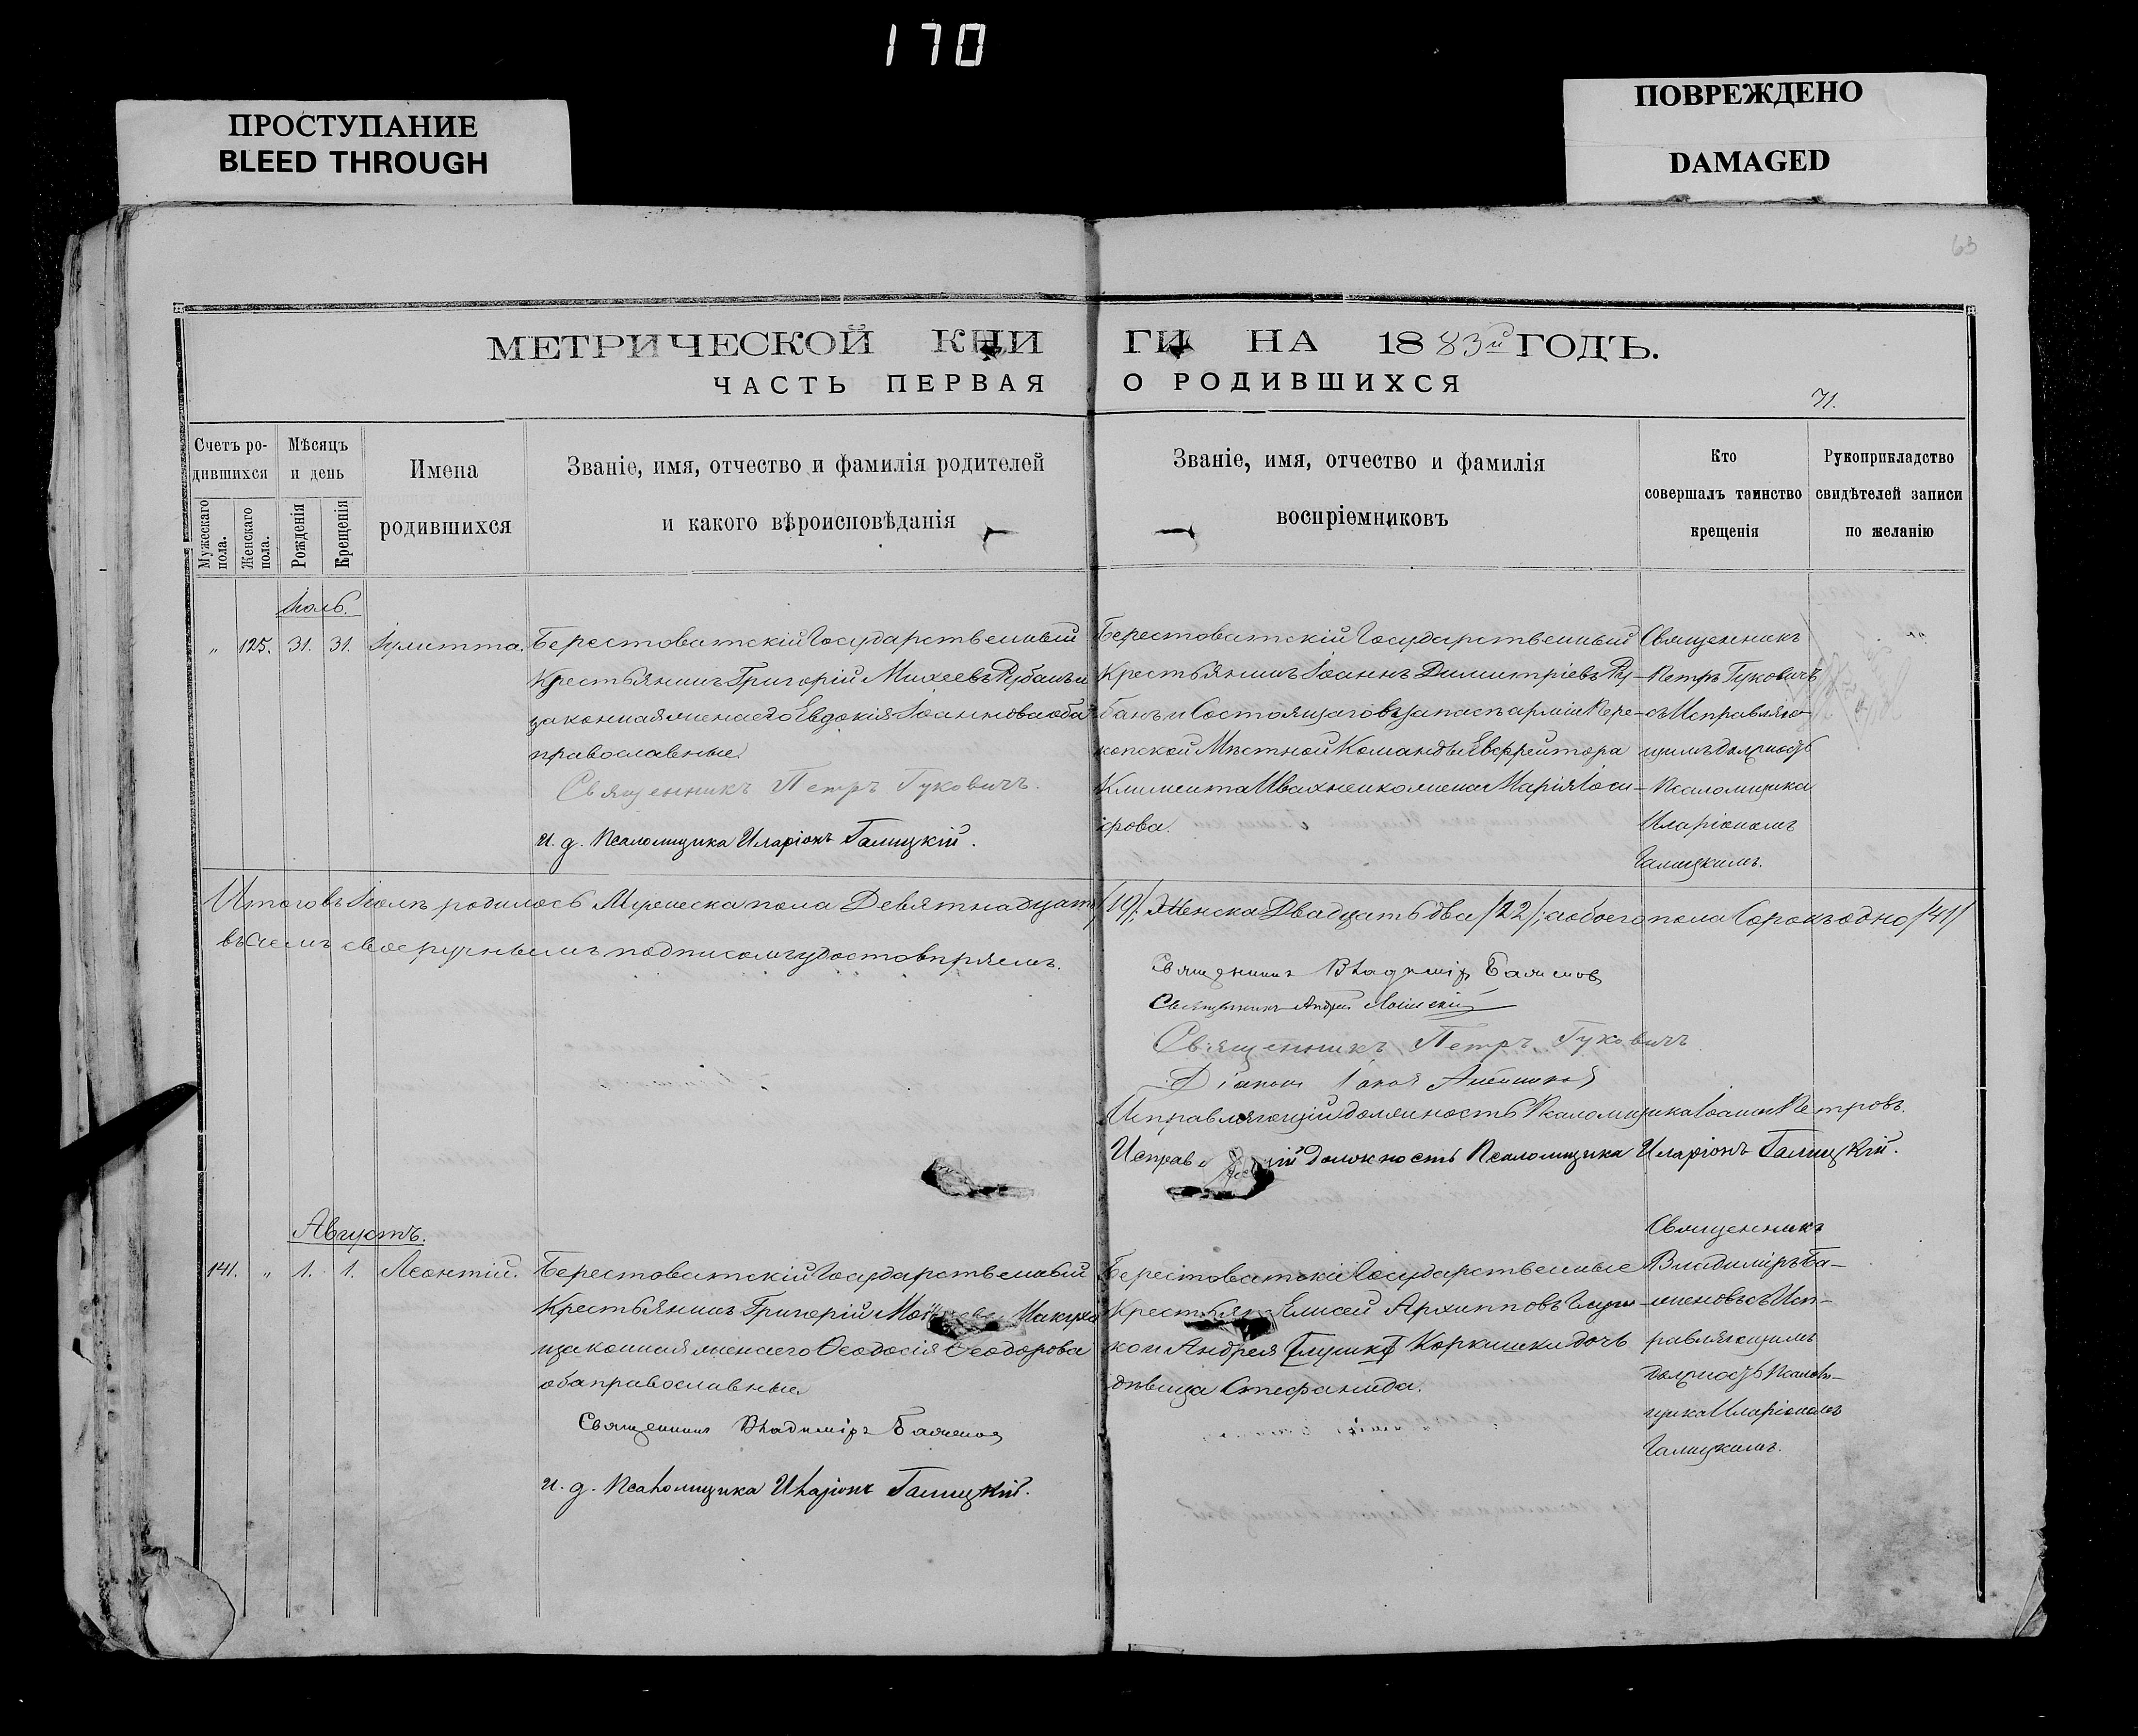 170
ПРОСТУПАНИЕ
BLEED THROUGH
ПОВРЕЖДЕНО
DAMAGED
63
МЕТРИЧЕСКОЙ КНИГИ НА 1883й ГОДЪ.
ЧАСТЬ ПЕРВАЯ О РОДИВШИХСЯ
71.
Счетъ ро-
дившихся
Мужескаго пола.
Женскаго пола.
Мѣсяцъ
и день
Рожденія
Крещенія
Имена
родившихся
Званіе, имя, отчество и фамилія родителей
и какого вѣроисповѣданія
Званіе, имя, отчество и фамилія
воспріемниковъ
Кто
совершалъ таинство
крещенія
Рукоприкладство
свидѣтелей записи
по желанію
Іюль.
" 125. 31. 31. Іулитта.
Берестоватскій Государственный
Крестьянинъ Григорій Михеевъ Рубанъ и
законная жена его Евдокія Іоаннова оба
православные.
Священникъ Петръ Гуковичъ.
И. д. Псаломщика Иларіонъ Галицкій.
Берестоватскій Государственный
Крестьянинъ Іоаннъ Димитріевъ Ру-
банъ и Состоящаго въ запасѣ арміи Пере-
копской Мѣстной Команды Ефрейтора
Климента Ивахненко жена Марія Іоси-
фова.
Священникъ
Петръ Гуковичъ
съ Исправляю-
щимъ должность
Псаломщика
Иларіономъ
Галицкимъ.
Итого въ Іюлѣ родилось Мужеска пола Девятнадцать /19/. Женска Двадцать два /22/; а обоего пола Сорокъ одно /41/
въ чемъ своеручнымъ подписомъ удостовѣряемъ.
Священникъ Владиміръ Баженовъ
Священникъ Андрей
Священникъ Петръ Гуковичъ
Діаконъ
Исправляющій должность Псаломщика Іоаннъ Петровъ.
Исправ ій должность Псаломщика Иларіонъ Галицкій.
Августъ.
141. " 1. 1. Леонтій.
Берестоватскій Государственный
Крестьянинъ Григорій Макуха
и законная жена его Ѳеодосія Ѳеодорова
оба православные.
Священникъ Владиміръ Баженовъ
И. д. Псаломщика Иларіонъ Галицкій.
Берестоватскіе Государственные
Крестьян Елисей Архипповъ Глущ-
ко и Андрея Коркишки дочь
дѣвица Стефанида.
Священникъ
Владиміръ Ба-
женовъ съ Исп-
равляющимъ
должность Псалом-
щика Иларіономъ
Галицкимъ.